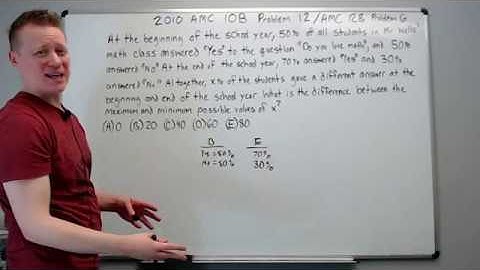 2010 AMC 10B Problem 12/AMC 12B Problem 6
At the beginning of the school year, 50% of all students in Mr. Wells'
math class answered "Yes" to the question "Do you love math", and 50%
answered "No." At the end of the school year, 70% answered "Yes" and 30%
answered "No." Altogether, x% of the students gave a different answer at the
beginning and end of the school year. What is the difference between the
maximum and minimum possible values of x?
(A) 0 (B) 20 (C) 40 (D) 60 (E) 80
B E
Yes = 50% 70%
No = 50% 30%